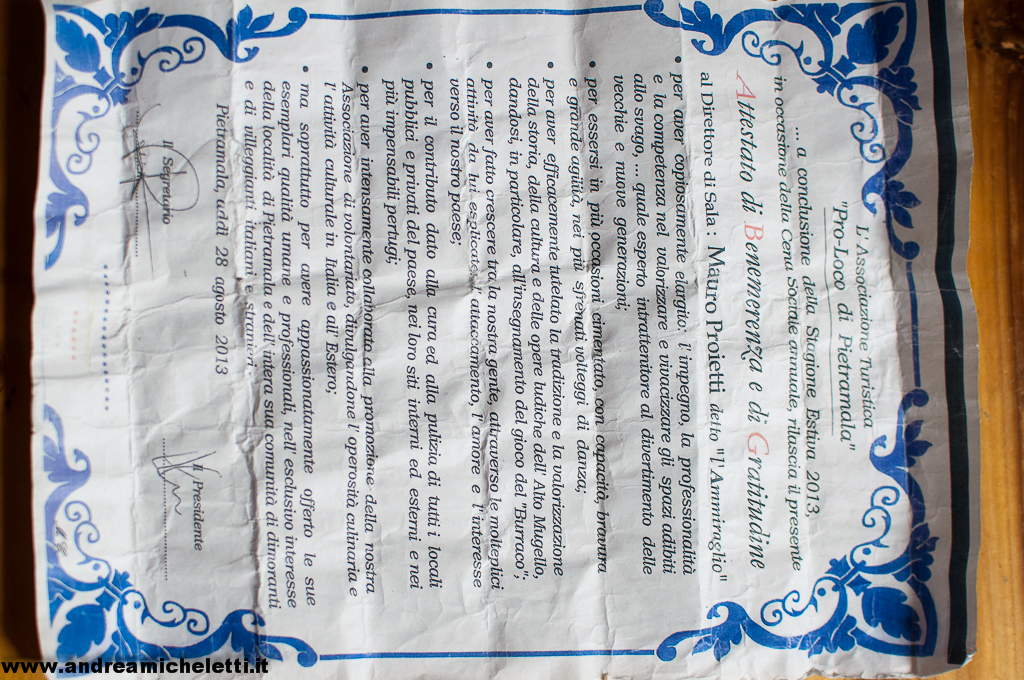 L'Associazione Turistica
"Pro-Loco di Pietramala"
... a conclusione della Stagione Estiva 2013,
in occasione della Cena Sociale annuale, rilascia il presente
Attestato di Benemerenza e di Gratitudine
al Direttore di Sala : Mauro Proietti detto "l'Ammiraglio"
• per aver copiosamente elargito: l'impegno, la professionalità
e la competenza nel valorizzare e vivacizzare gli spazi adibiti
allo svago, ... quale esperto intrattenitore al divertimento delle
vecchie e nuove generazioni;
• per essersi in più occasioni cimentato, con capacità, bravura
e grande agilità, nei più sfrenati volteggi di danza;
• per aver efficacemente tutelato la tradizione e la valorizzazione
della storia, della cultura e delle opere ludiche dell'Alto Mugello,
dandosi, in particolare, all'insegnamento del gioco del "Burraco";
• per aver fatto crescere tra la nostra gente, attraverso le molteplici
attività da lui esplicate, l'attaccamento, l'amore e l'interesse
verso il nostro paese;
• per il contributo dato alla cura ed alla pulizia di tutti i locali
pubblici e privati del paese, nei loro siti interni ed esterni e nei
più impensabili pertugi;
• per aver intensamente collaborato alla promozione della nostra
Associazione di volontariato, divulgandone l'operosità culinaria e
l'attività culturale in Italia e all'Estero;
• ma soprattutto per avere appassionatamente offerto le sue
esemplari qualità umane e professionali, nell'esclusivo interesse
della località di Pietramala e dell'intera sua comunità di dimoranti
e di villeggianti italiani e stranieri.
Pietramala, addì 28 agosto 2013
Il Segretario
Il Presidente
www.andreamicheletti.it